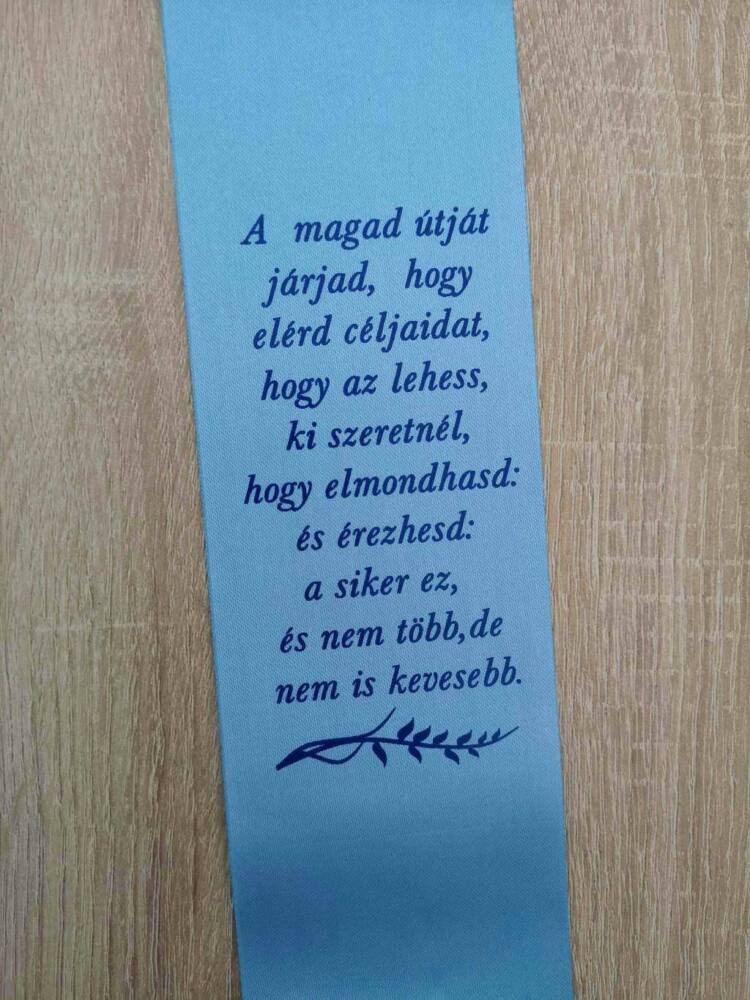 A magad útját
járjad, hogy
elérd céljaidat,
hogy az lehess,
ki szeretnél,
hogy elmondhasd:
és érezhesd:
a siker ez,
és nem több,de
nem is kevesebb.